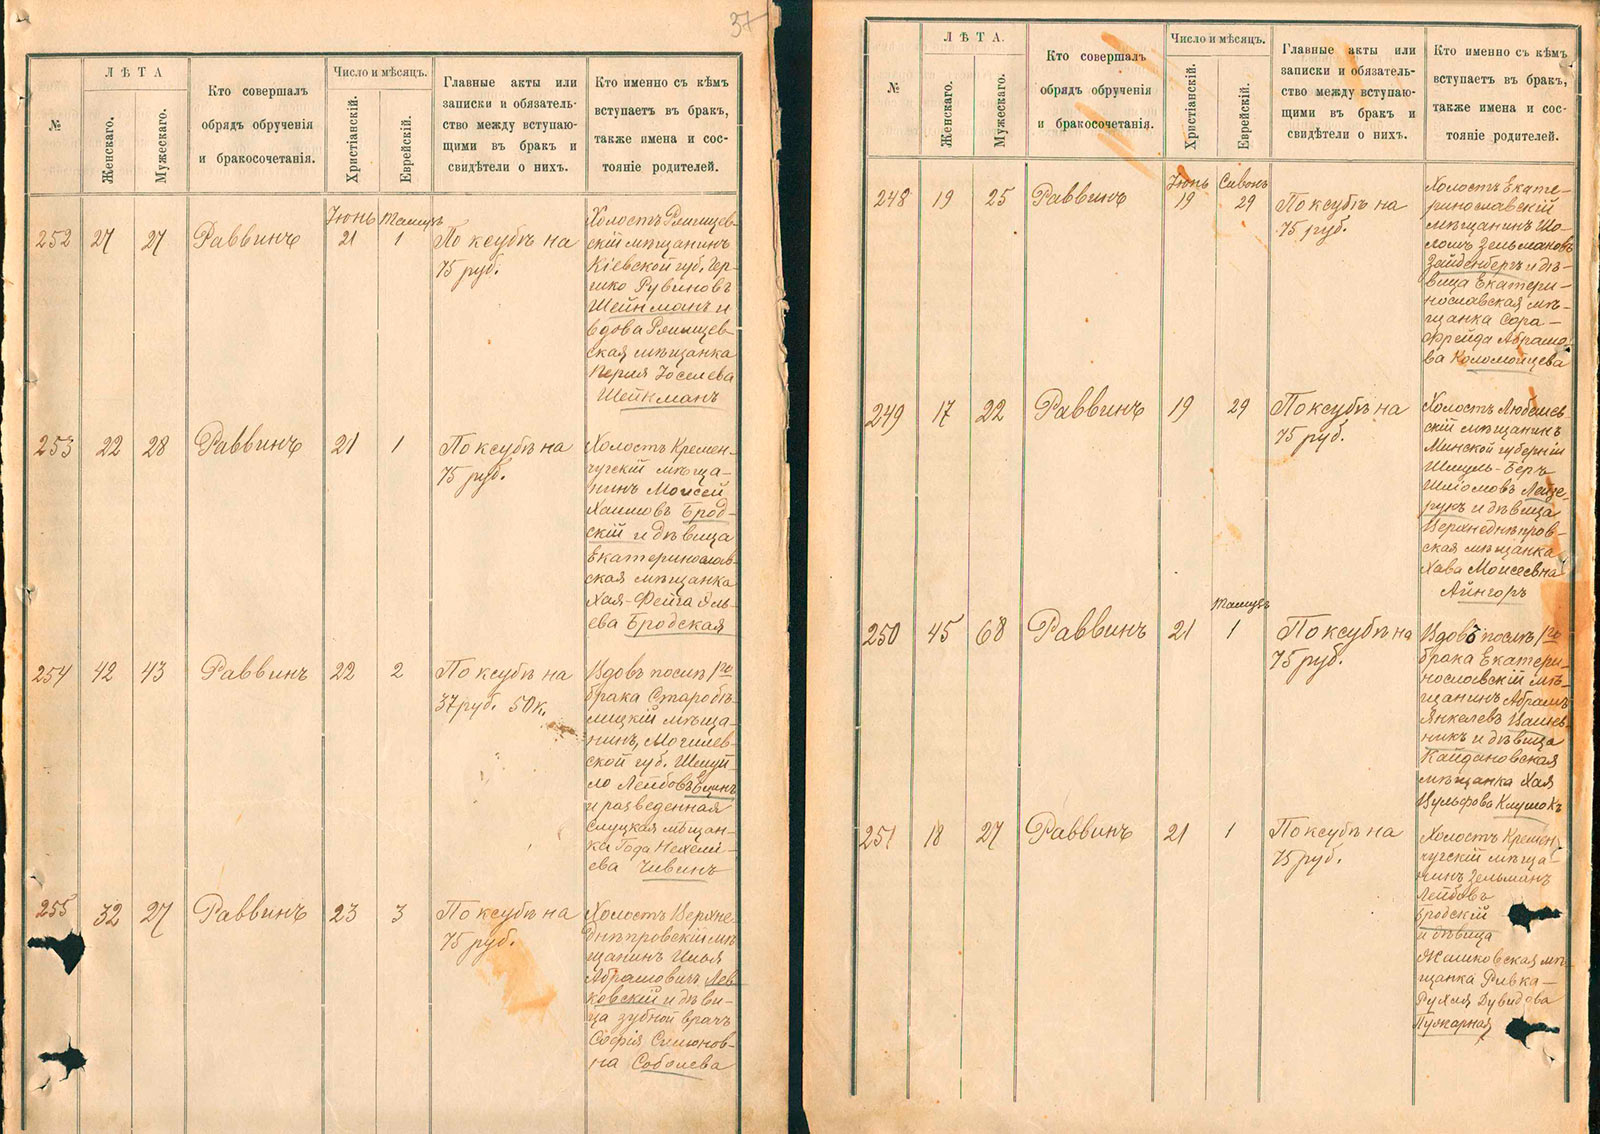 37
№
ЛѢТА
Женскаго.
Мужескаго.
Кто совершалъ
обрядъ обрученія
и бракосочетанія.
Число и мѣсяцъ.
Христіанскій.
Еврейскій.
Главные акты или
записки и обязатель-
ство между вступаю-
щими въ бракъ и
свидѣтели о нихъ.
Кто именно съ кѣмъ
вступаетъ въ бракъ,
также имена и сос-
тояніе родителей.
252 27 27 Раввинъ Іюнь 21 Тамузъ 1
По ксубѣ на
75 руб.
Холостъ
скій мѣщанинъ
Кіевской губ. Гер-
шко Рувиновъ
Шейнманъ и
вдова
ская мѣщанка
Перля Іоселева
Шейкманъ
253 22 28 Раввинъ 21 1
По ксубѣ на
75 руб.
Холостъ Кремен-
чугскій мѣща-
нинъ Моисей
Хаимовъ Брод-
скій и дѣвица
Екатеринослав-
ская мѣщанка
Хая-Фейга Эль-
ева Бродская
254 42 43 Раввинъ 22 2
По ксубѣ на
37 руб. 50 к.
Вдовъ послѣ 1го
брака Старобѣ-
лицкій мѣща-
нинъ, Могилев-
ской губ. Шмуй-
ло Лейбовъ
и разведенная
слуцкая мѣщан-
ка Года Нехемі-
ева Чивинъ
255 32 27 Раввинъ 23 3
По ксубѣ на
75 руб.
Холостъ Верхне-
днѣпровскій мѣ-
щанинъ Илья
Абрамовичъ Лев-
ковскій и дѣви-
ца зубной врачъ
Софія Симонов-
на Соболева
№
ЛѢТА.
Женскаго.
Мужескаго.
Кто совершалъ
обрядъ обрученія
и бракосочетанія.
Число и мѣсяцъ.
Христіанскій.
Еврейскій.
Главные акты или
записки и обязатель-
ство между вступаю-
щими въ бракъ и
свидѣтели о нихъ.
Кто именно съ кѣмъ
вступаетъ въ бракъ,
также имена и сос-
тояніе родителей.
248 19 25 Раввинъ Іюнь 19 Сивонъ 29
По ксубѣ на
75 руб.
Холостъ Екате-
ринославскій
мѣщанинъ Шо-
ломъ Зельмановъ
Зайденбергъ и дѣ-
вица Екатери-
нославская мѣ-
щанка Сора-
Фрейда Абрамо-
ва Коломойцева
249 17 22 Раввинъ 19 29
По ксубѣ на
75 руб.
Холостъ Любешев-
скій мѣщанинъ
Минской губерніи
Шмуль-Беръ
Шліомовъ Лейзе-
рукъ и дѣвица
Верхнеднѣпров-
ская мѣщанка
Хава Моисеевна
Айнгоръ
250 45 68 Раввинъ 21 Тамузъ 1
По ксубѣ на
75 руб.
Вдовъ послѣ 1го
брака Екатери-
нославскій мѣ-
щанинъ Абрамъ
Янкелевъ
никъ и дѣвица
Кайдановская
мѣщанка Хая
Вульфова Клумокъ
251 18 27 Раввинъ 21 1
По ксубѣ на
75 руб.
Холостъ Кремен-
чугскій мѣща-
нинъ Зельманъ
Лейбовъ
Бродскій
и дѣвица
Жашковская мѣ-
щанка Ривка-
Рухля Дувидова
Пушкарная